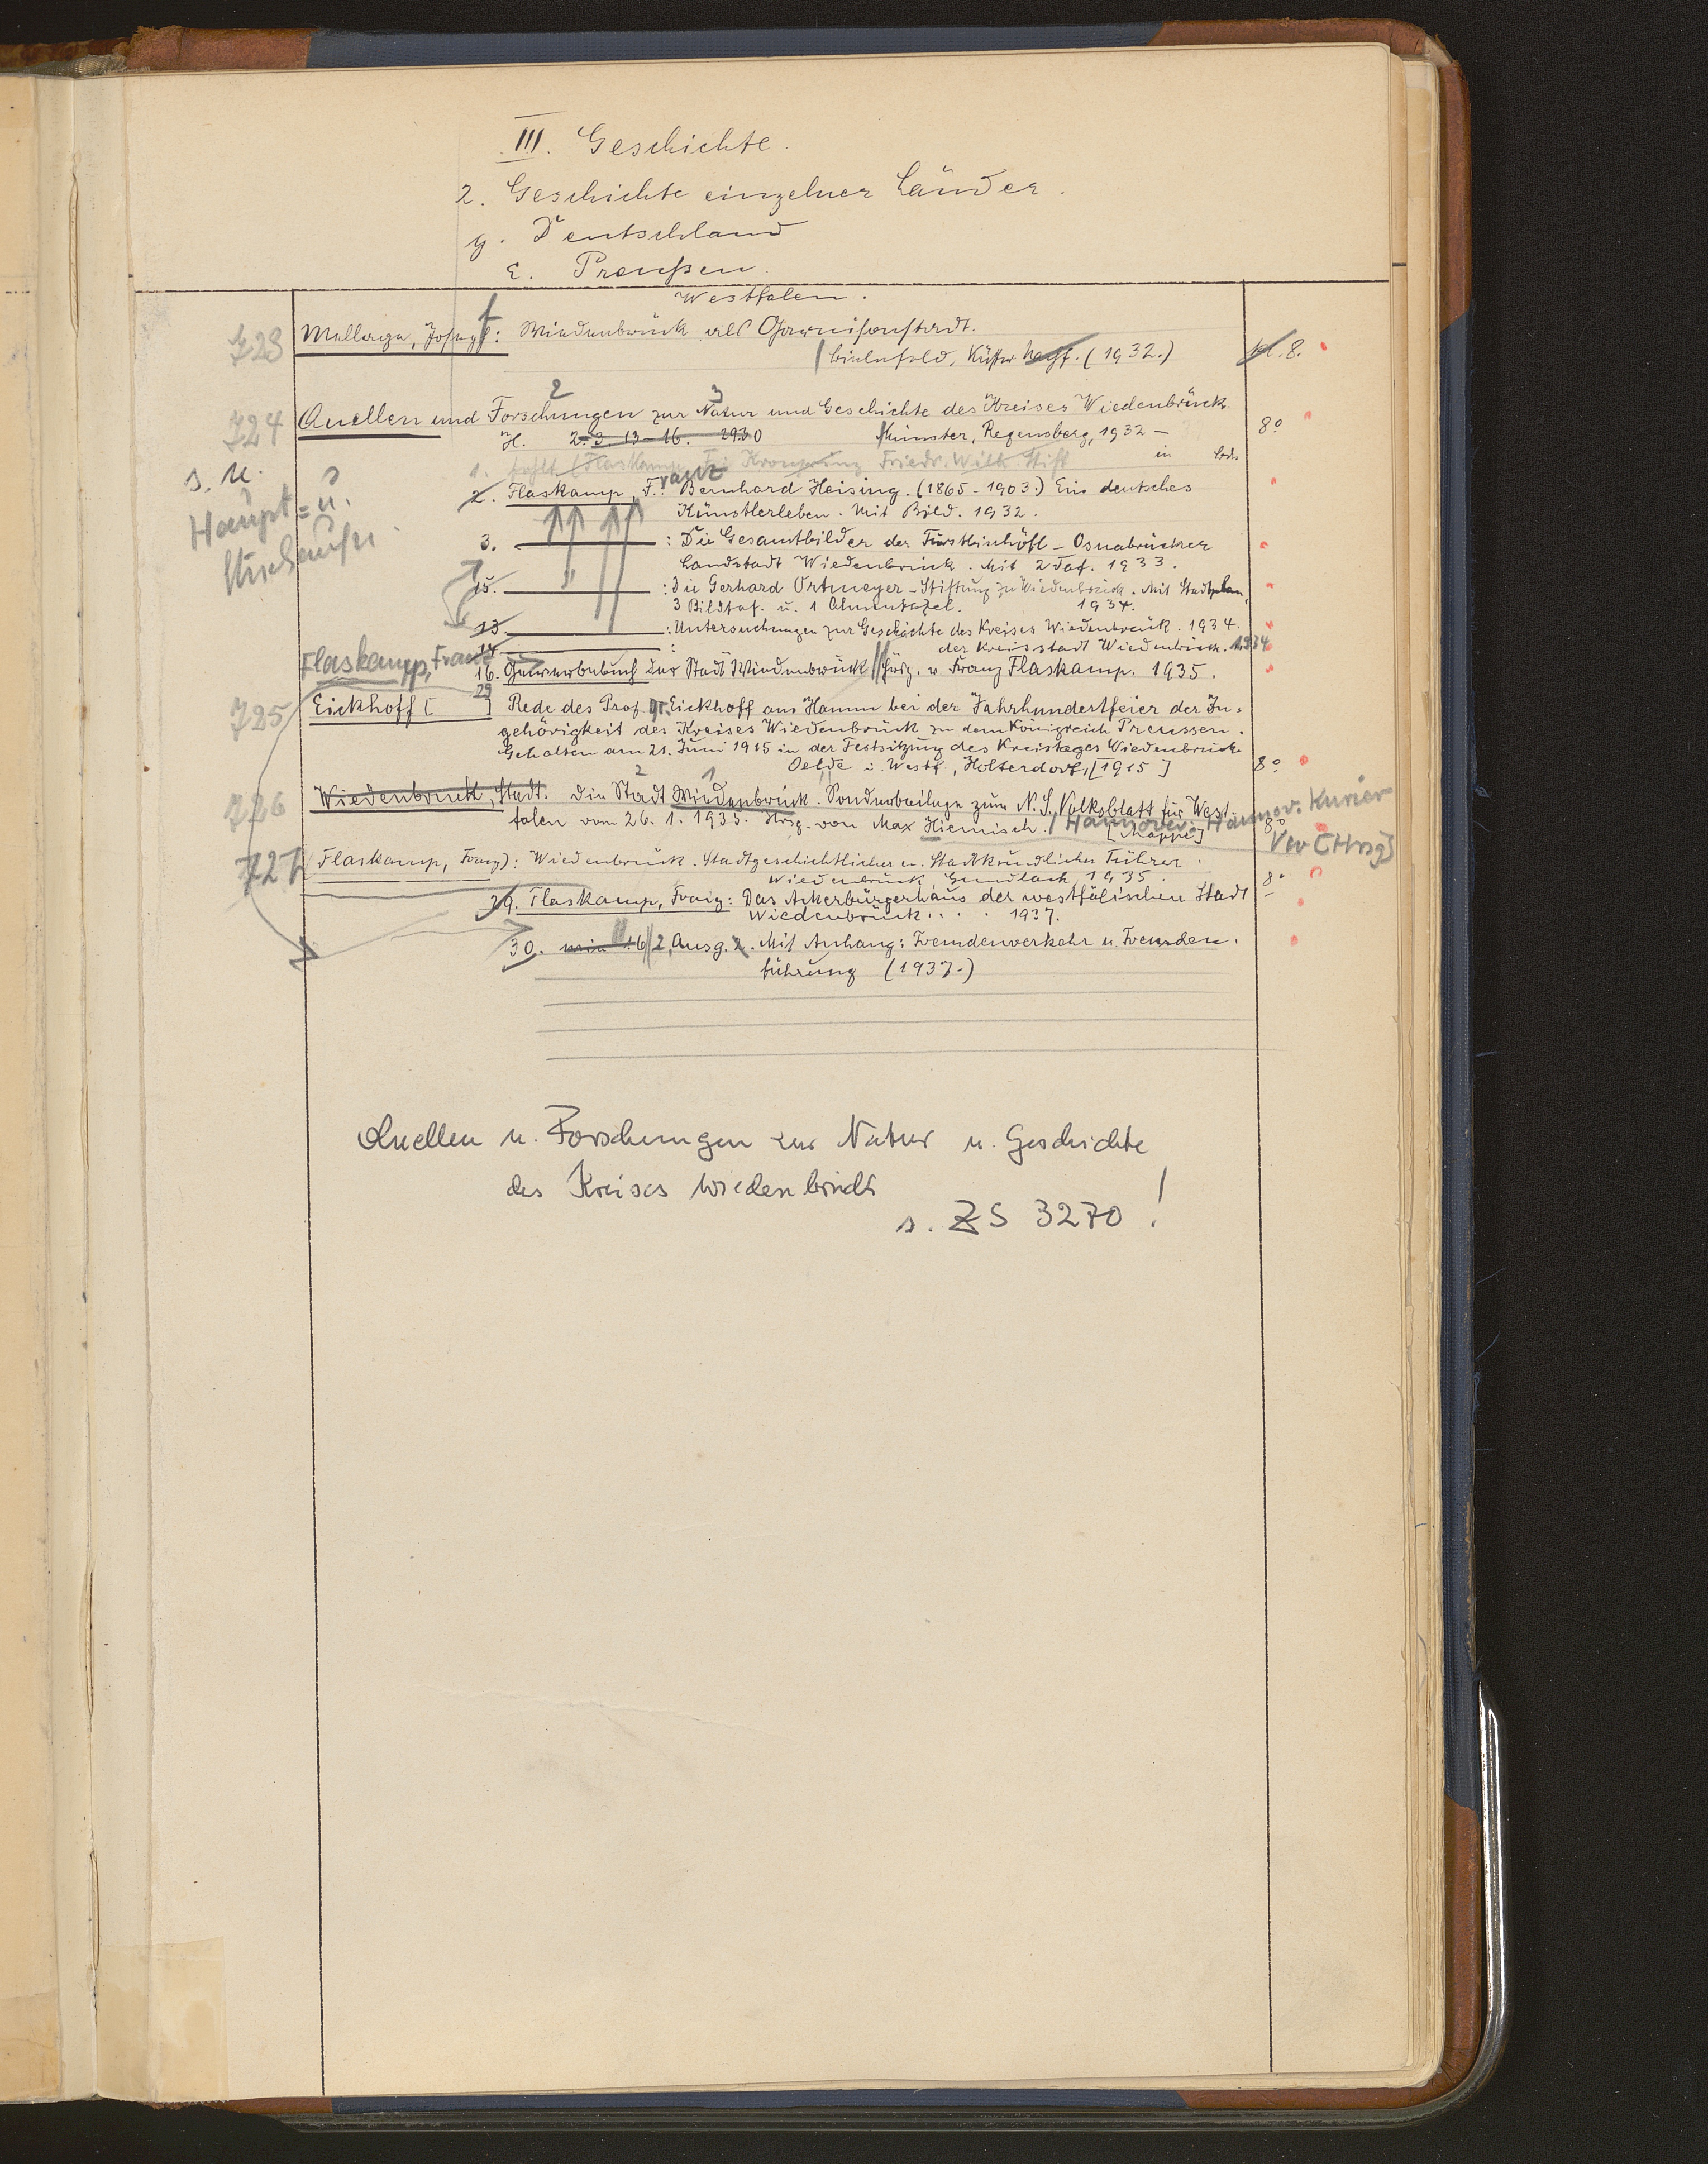 III. Geschichte.
2. Geschichte einzelner Länder.
y. Deutschland
ε. Preußen.
Westfalen.
723 Mellage, Josef: Wiedenbrück als Garnisonstadt.
Bielefeld, Küster (1932.) kl. 8.
724 Quellen und Forschungen zur Natur und Geschichte des Kreises Wiedenbrück.
2 3
H. 2. 3. 13-16. 29.30 Münster, Regensberg, 1932 – 8°
1. fehlt (Flaskamp, Fr: Kronprinz Friedr. Wilh. Stift in
s. u.
Haupt= u.
2. Flaskamp, Franz: Bernhard Heising. (1865-1903.) Ein deutsches
Künstlerleben. Mit Bild. 1932.
3. : Die Gesamtbilder der Fürstbischöfl-Osnabrücker
Landstadt Wiedenbrück. Mit 2 Taf. 1933.
15. : Die Gerhard Ortmeyer-Stiftung zu Wiedenbrück. Mit Stadtplan,
3 Bildtaf. u. 1 Ahnentafel. 1934.
13. : Untersuchungen zur Geschichte des Kreises Wiedenbrück. 1934.
14. : der Kreisstadt Wiedenbrück. 1934
Flaskamp, Franz
16. Gewerbebuch der Stadt Wiedenbrück // Hrsg. v. Franz Flaskamp. 1935.
29
725 Eickhoff [ ] Rede des Prof. Dr. Eickhoff aus Hamm bei der Jahrhundertfeier der Zu=
gehörigkeit des Kreises Wiedenbrück zu dem Königreich Preussen.
Gehalten am 21. Juni 1915 in der Festsitzung des Kreistages Wiedenbrück
Oelde i. Westf., Holterdorf, [1915] 8°
2 1
726 Wiedenbrück, Stadt: Die Stadt Wiedenbrück. Sonderbeilage zum N. S. Volksblatt für West=
falen vom 26. 1. 1935. Hrsg. von Max Hiemisch. / Hannover: Hannov. Kurier
[Mappe] 8° Vw [Hrsg]
727 Flaskamp, Franz): Wiedenbrück. Stadtgeschichtlicher u. Stadtkundlicher Führer.
Wiedenbrück, Gundlach, 1935. 8°
29. Flaskamp, Franz: Das Ackerbürgerhaus der westfälischen Stadt
Wiedenbrück.... 1937.
30. wie 16 // 2. Ausg. 2. Mit Anhang: Fremdenverkehr u. Fremden=
führung (1937.)
Quellen u. Forschungen zur Natur u. Geschichte
des Kreises Wiedenbrück
s. ZS 3270!